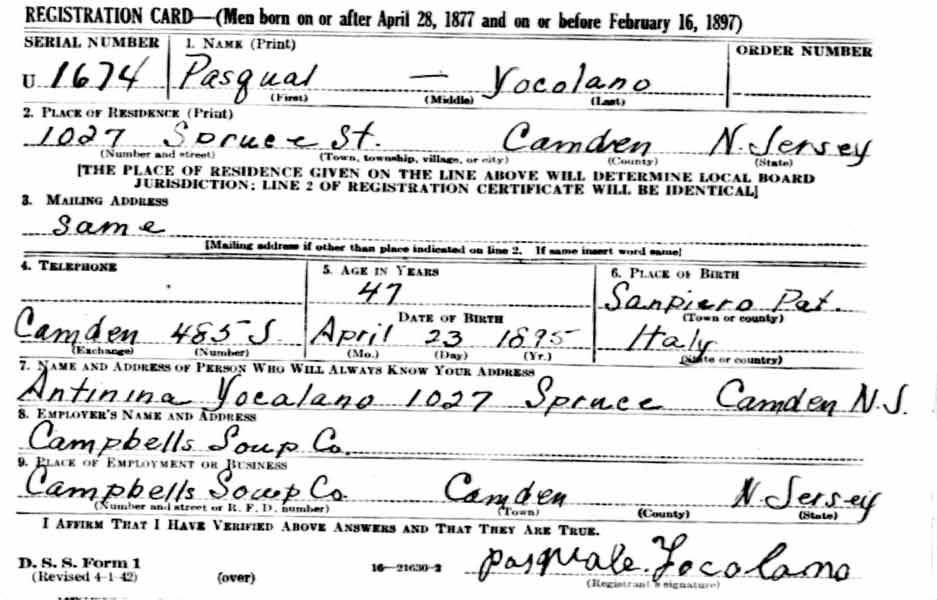 REGISTRATION CARD—(Men born on or after April 28, 1877 and on or before February 16, 1897)
SERIAL NUMBER 1. NAME (Print) ORDER NUMBER
U 1674 Pasqual — Yocolano
(First) (Middle) (Last)
2. PLACE OF RESIDENCE (Print)
1027 Spruce St. Camden N. Jersey
(Number and street) (Town, township, village, or city) (County) (State)
[THE PLACE OF RESIDENCE GIVEN ON THE LINE ABOVE WILL DETERMINE LOCAL BOARD
JURISDICTION; LINE 2 OF REGISTRATION CERTIFICATE WILL BE IDENTICAL]
3. MAILING ADDRESS
Same
[Mailing address if other than place indicated on line 2. If same insert word same]
4. TELEPHONE 5. AGE IN YEARS 6. PLACE OF BIRTH
47 Sanpiero Pat.
DATE OF BIRTH (Town or county)
Camden 485 J April 23 1895 Italy
(Exchange) (Number) (Mo.) (Day) (Yr.) (State or country)
7. NAME AND ADDRESS OF PERSON WHO WILL ALWAYS KNOW YOUR ADDRESS
Antinina Yocalano 1027 Spruce Camden N.J.
8. EMPLOYER'S NAME AND ADDRESS
Campbells Soup Co.
9. PLACE OF EMPLOYMENT OR BUSINESS
Campbells Soup Co Camden N Jersey
(Number and street or R. F. D. number) (Town) (County) (State)
I AFFIRM THAT I HAVE VERIFIED ABOVE ANSWERS AND THAT THEY ARE TRUE.
D. S. S. Form 1
(Revised 4-1-42) (over) 16—21630-2 Pasquale Yocolano
(Registrant's signature)